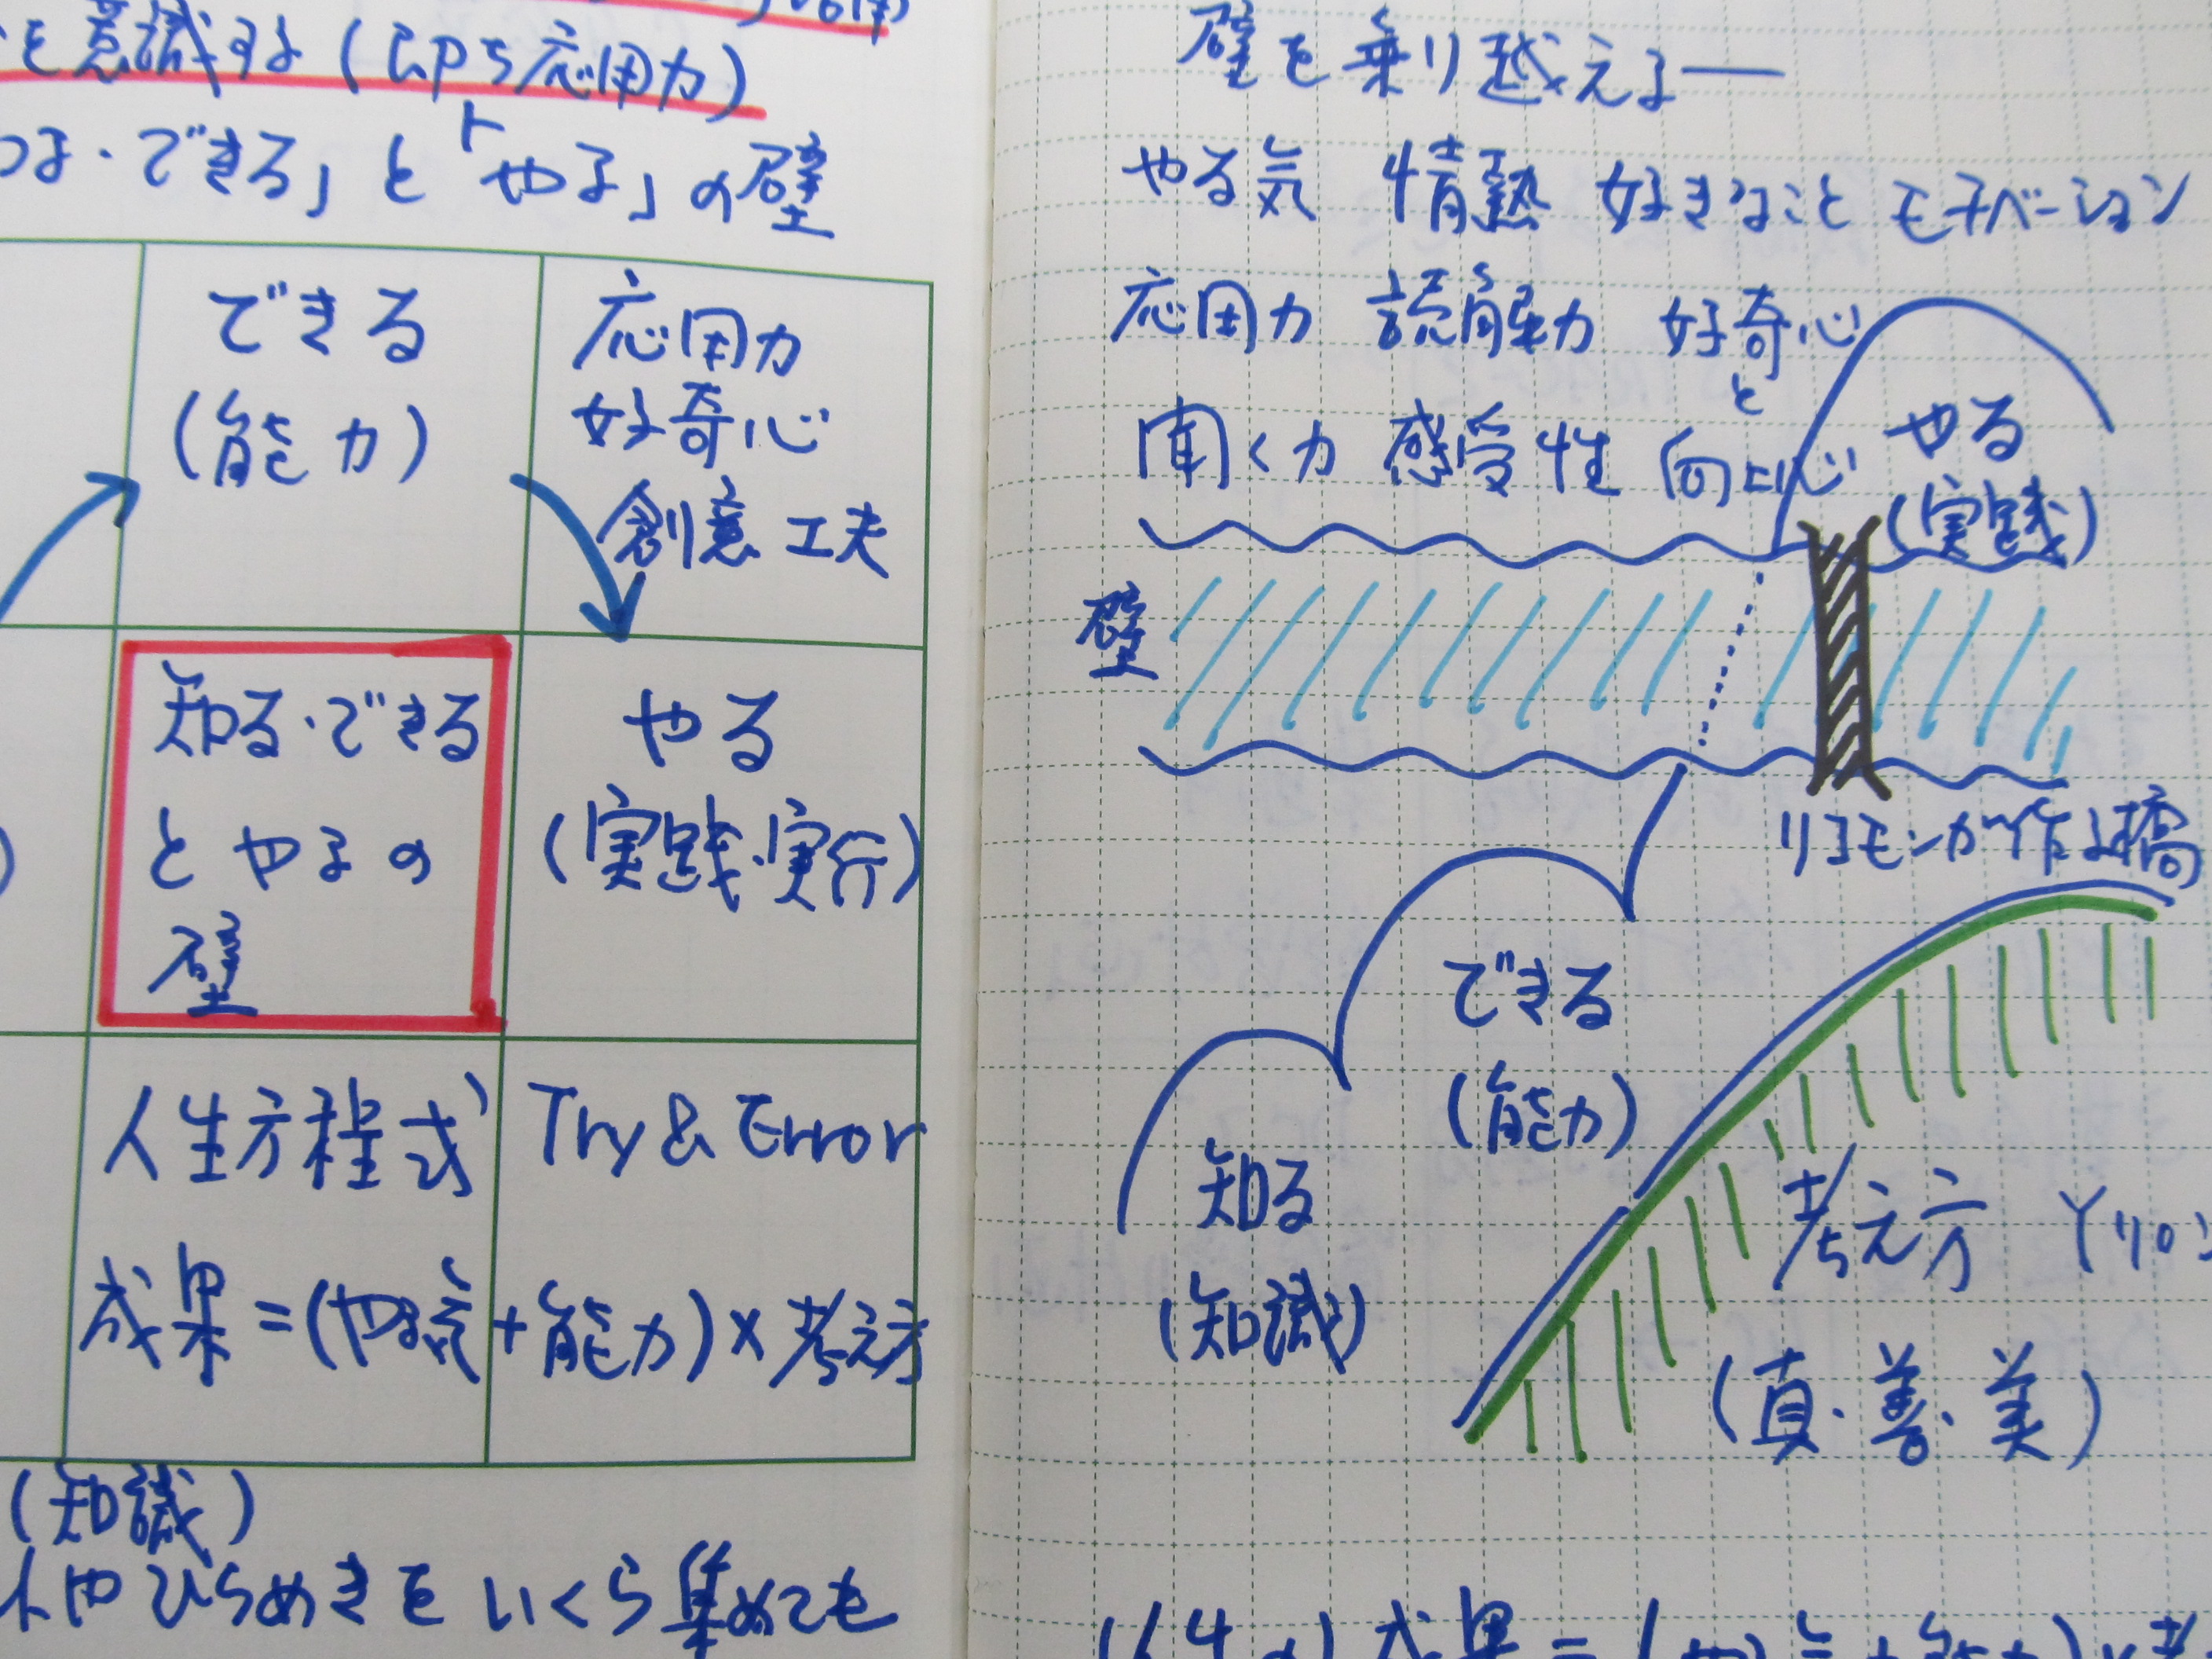 を意識する(即ち応用力)
つる・できる」と「やる」の壁
できる
(能力)
応用力
好奇心
創意工夫
知る・できる
とやるの
壁
やる
(実践・実行)
人生方程式
Try & Error
成果=(やる気+能力)×考え方
(知識)
やひらめきをいくら集めても
壁を乗り越える―
やる気 情熱 好きなこと モチベーション
応用力 読解力 好奇心
と
聞く力 感受性 向上心
やる
(実践)
壁
リコモンが作る橋
できる
(能力)
知る
(知識)
考え方
(真・善・美)
成果=(やる気+能力)×考